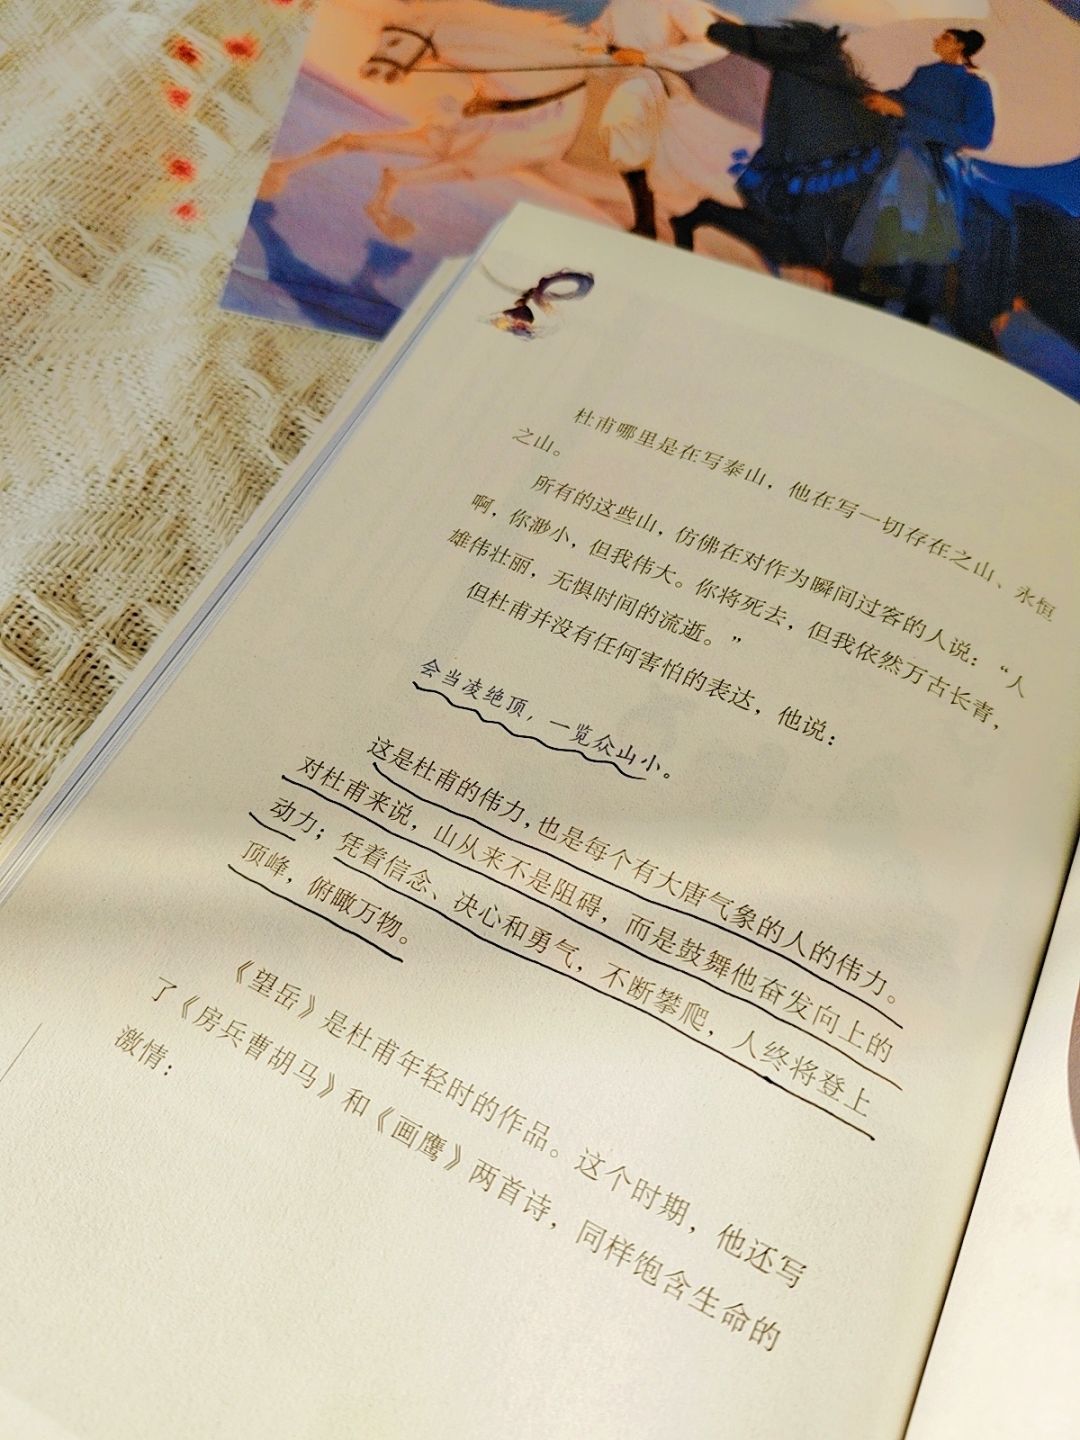 杜甫哪里是在写泰山，他在写一切存在之山、永恒
之山。
所有的这些山，仿佛在对作为瞬间过客的人说：“人
啊，你渺小，但我伟大。你将死去，但我依然万古长青，
雄伟壮丽，无惧时间的流逝。”
但杜甫并没有任何害怕的表达，他说：
会当凌绝顶，一览众山小。
这是杜甫的伟力，也是每个有大唐气象的人的伟力。
对杜甫来说，山从来不是阻碍，而是鼓舞他奋发向上的
动力；凭着信念、决心和勇气，不断攀爬，人终将登上
顶峰，俯瞰万物。
《望岳》是杜甫年轻时的作品。这个时期，他还写
了《房兵曹胡马》和《画鹰》两首诗，同样饱含生命的
激情：